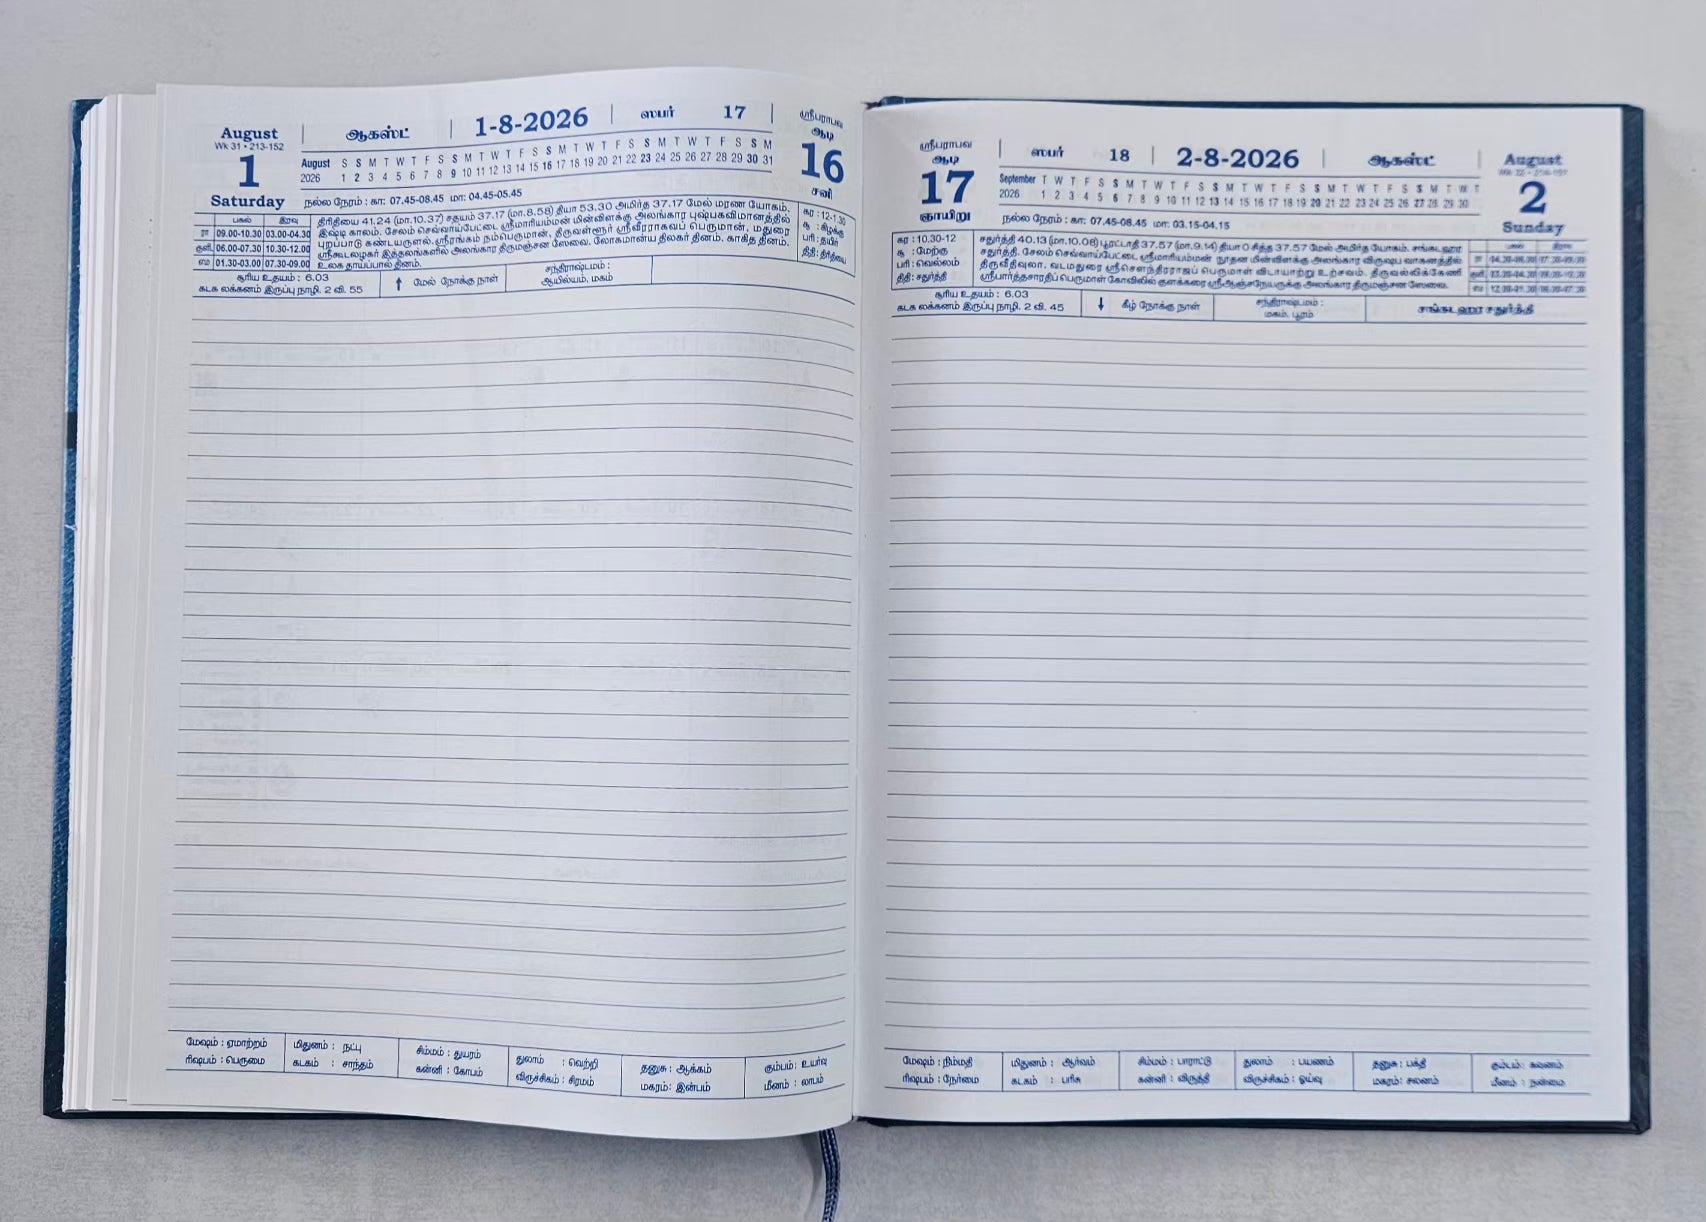 August
Wk 31 • 213-152
1
Saturday
ஆகஸ்ட்
1-8-2026
ஸபர் 17
ஸ்ரீபராபவ
ஆடி
16
சனி
August S S M T W T F S S M T W T F S S M T W T F S S M T W T F S S M
2026 1 2 3 4 5 6 7 8 9 10 11 12 13 14 15 16 17 18 19 20 21 22 23 24 25 26 27 28 29 30 31
நல்ல நேரம் : கா: 07.45-08.45 மா: 04.45-05.45
பகல் இரவு
ரா 09.00-10.30 03.00-04.30
குளி 06.00-07.30 10.30-12.00
எம 01.30-03.00 07.30-09.00
திரிதியை 41.24 (மா.10.37) சதயம் 37.17 (மா.8.58) தியா 53.30 அமிர்த 37.17 மேல் மரண யோகம்.
இஷ்டி காலம். சேலம் செவ்வாய்பேட்டை ஸ்ரீமாரியம்மன் மின்விளக்கு அலங்கார புஷ்பகவிமானத்தில்
புறப்பாடு கண்டயருளல். ஸ்ரீரங்கம் நம்பெருமான், திருவள்ளூர் ஸ்ரீவீரராகவப் பெருமான், மதுரை
ஸ்ரீகூடலழகர் இத்தலங்களில் அலங்கார திருமஞ்சன ஸேவை. லோகமான்ய திலகர் தினம். காகித தினம்.
உலக தாய்ப்பால் தினம்.
கர : 12-1.30
சூ : கிழக்கு
பரி : தயிர்
திதி : திரிதியை
சூரிய உதயம் : 6.03
கடக லக்கனம் இருப்பு நாழி. 2 வி. 55
↑ மேல் நோக்கு நாள்
சந்திராஷ்டமம் :
ஆயில்யம், மகம்
மேஷம் : ஏமாற்றம்
ரிஷபம் : பெருமை
மிதுனம் : நட்பு
கடகம் : சாந்தம்
சிம்மம் : துயரம்
கன்னி : கோபம்
துலாம் : வெற்றி
விருச்சிகம் : சிரமம்
தனுசு : ஆக்கம்
மகரம் : இன்பம்
கும்பம் : உயர்வு
மீனம் : லாபம்
ஸ்ரீபராபவ
ஆடி
17
ஞாயிறு
ஸபர் 18
2-8-2026
ஆகஸ்ட்
August
2
Sunday
September T W T F S S M T W T F S S M T W T F S S M T W T F S S M T W T
2026 1 2 3 4 5 6 7 8 9 10 11 12 13 14 15 16 17 18 19 20 21 22 23 24 25 26 27 28 29 30
நல்ல நேரம் : கா: 07.45-08.45 மா: 03.15-04.15
கர : 10.30-12
சூ : மேற்கு
பரி : வெல்லம்
திதி : சதுர்த்தி
சதுர்த்தி 40.13 (மா.10.08) பூரட்டாதி 37.57 (மா.9.14) தியா 0 சித்த 37.57 மேல் அமிர்த யோகம். சங்கடஹர
சதுர்த்தி. சேலம் செவ்வாய்பேட்டை ஸ்ரீமாரியம்மன் நூதன மின்விளக்கு அலங்கார விருஷப வாகனத்தில்
திருவீதிவுலா. வடமதுரை ஸ்ரீசௌந்தரராஜப் பெருமாள் விடாயாற்று உற்சவம். திருவல்லிக்கேணி
ஸ்ரீபார்த்தசாரதிப் பெருமாள் கோவிலில் குளக்கரை ஸ்ரீஆஞ்சநேயருக்கு அலங்கார திருமஞ்சன ஸேவை.
பகல் இரவு
ரா 04.30-06.00 07.30-09.00
குளி 03.00-04.30 09.00-10.30
எம 12.00-01.30 06.00-07.30
சூரிய உதயம் : 6.03
கடக லக்கனம் இருப்பு நாழி. 2 வி. 45
↓ கீழ் நோக்கு நாள்
சந்திராஷ்டமம் :
மகம், பூரம்
சங்கடஹர சதுர்த்தி
மேஷம் : நிம்மதி
ரிஷபம் : நேர்மை
மிதுனம் : ஆர்வம்
கடகம் : பரிசு
சிம்மம் : பாராட்டு
கன்னி : விருத்தி
துலாம் : பயணம்
விருச்சிகம் : ஓய்வு
தனுசு : பக்தி
மகரம் : சலனம்
கும்பம் : கவனம்
மீனம் : நன்மை